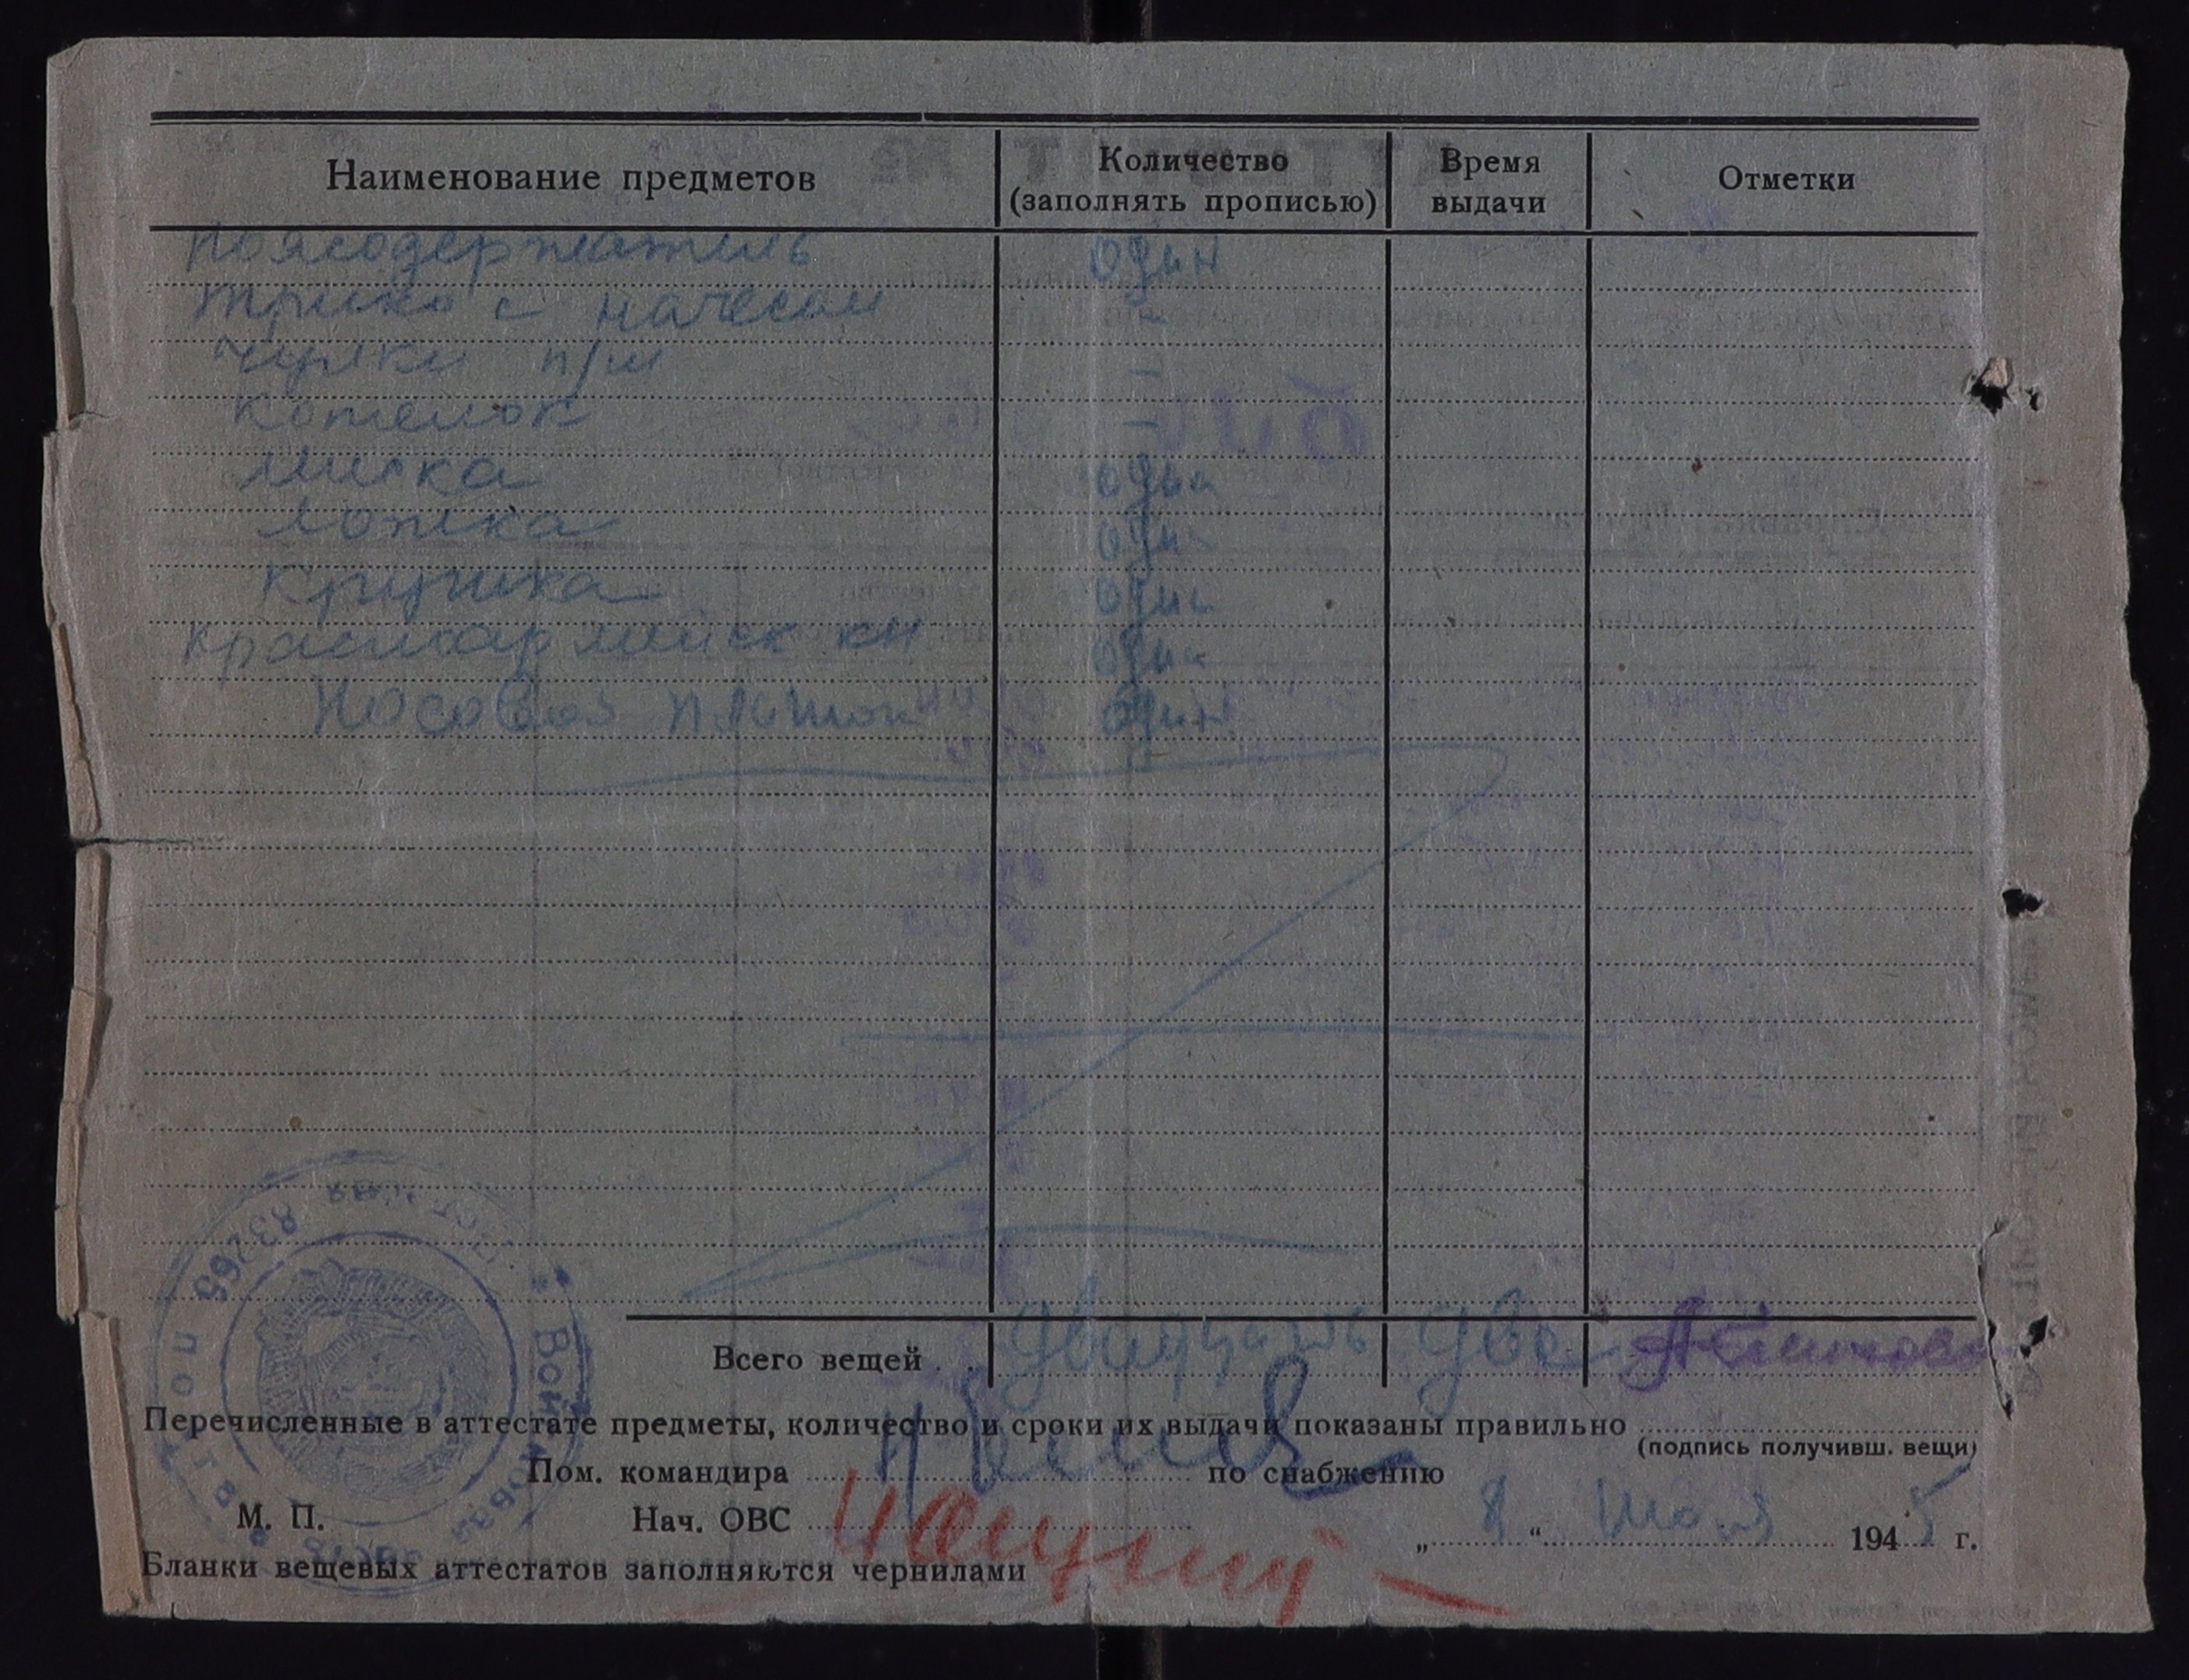 Наименование предметов
Количество (заполнять прописью)
Время выдачи
Отметки
Поясодержатель один
Трико с начесом –
Чулки п/ш –
Котелок –
Миска одна
Ложка одна
Кружка одна
Красноармейск кн одна
Носовой платок один
Всего вещей . . двадцать две
Перечисленные в аттестате предметы, количество и сроки их выдачи показаны правильно
(подпись получивш. вещи)
Пом. командира по снабжению
М. П. Нач. ОВС
„ 8 “ Июля 1945 г.
Бланки вещевых аттестатов заполняются чернилами
Войсковая часть Полевая почта 83265